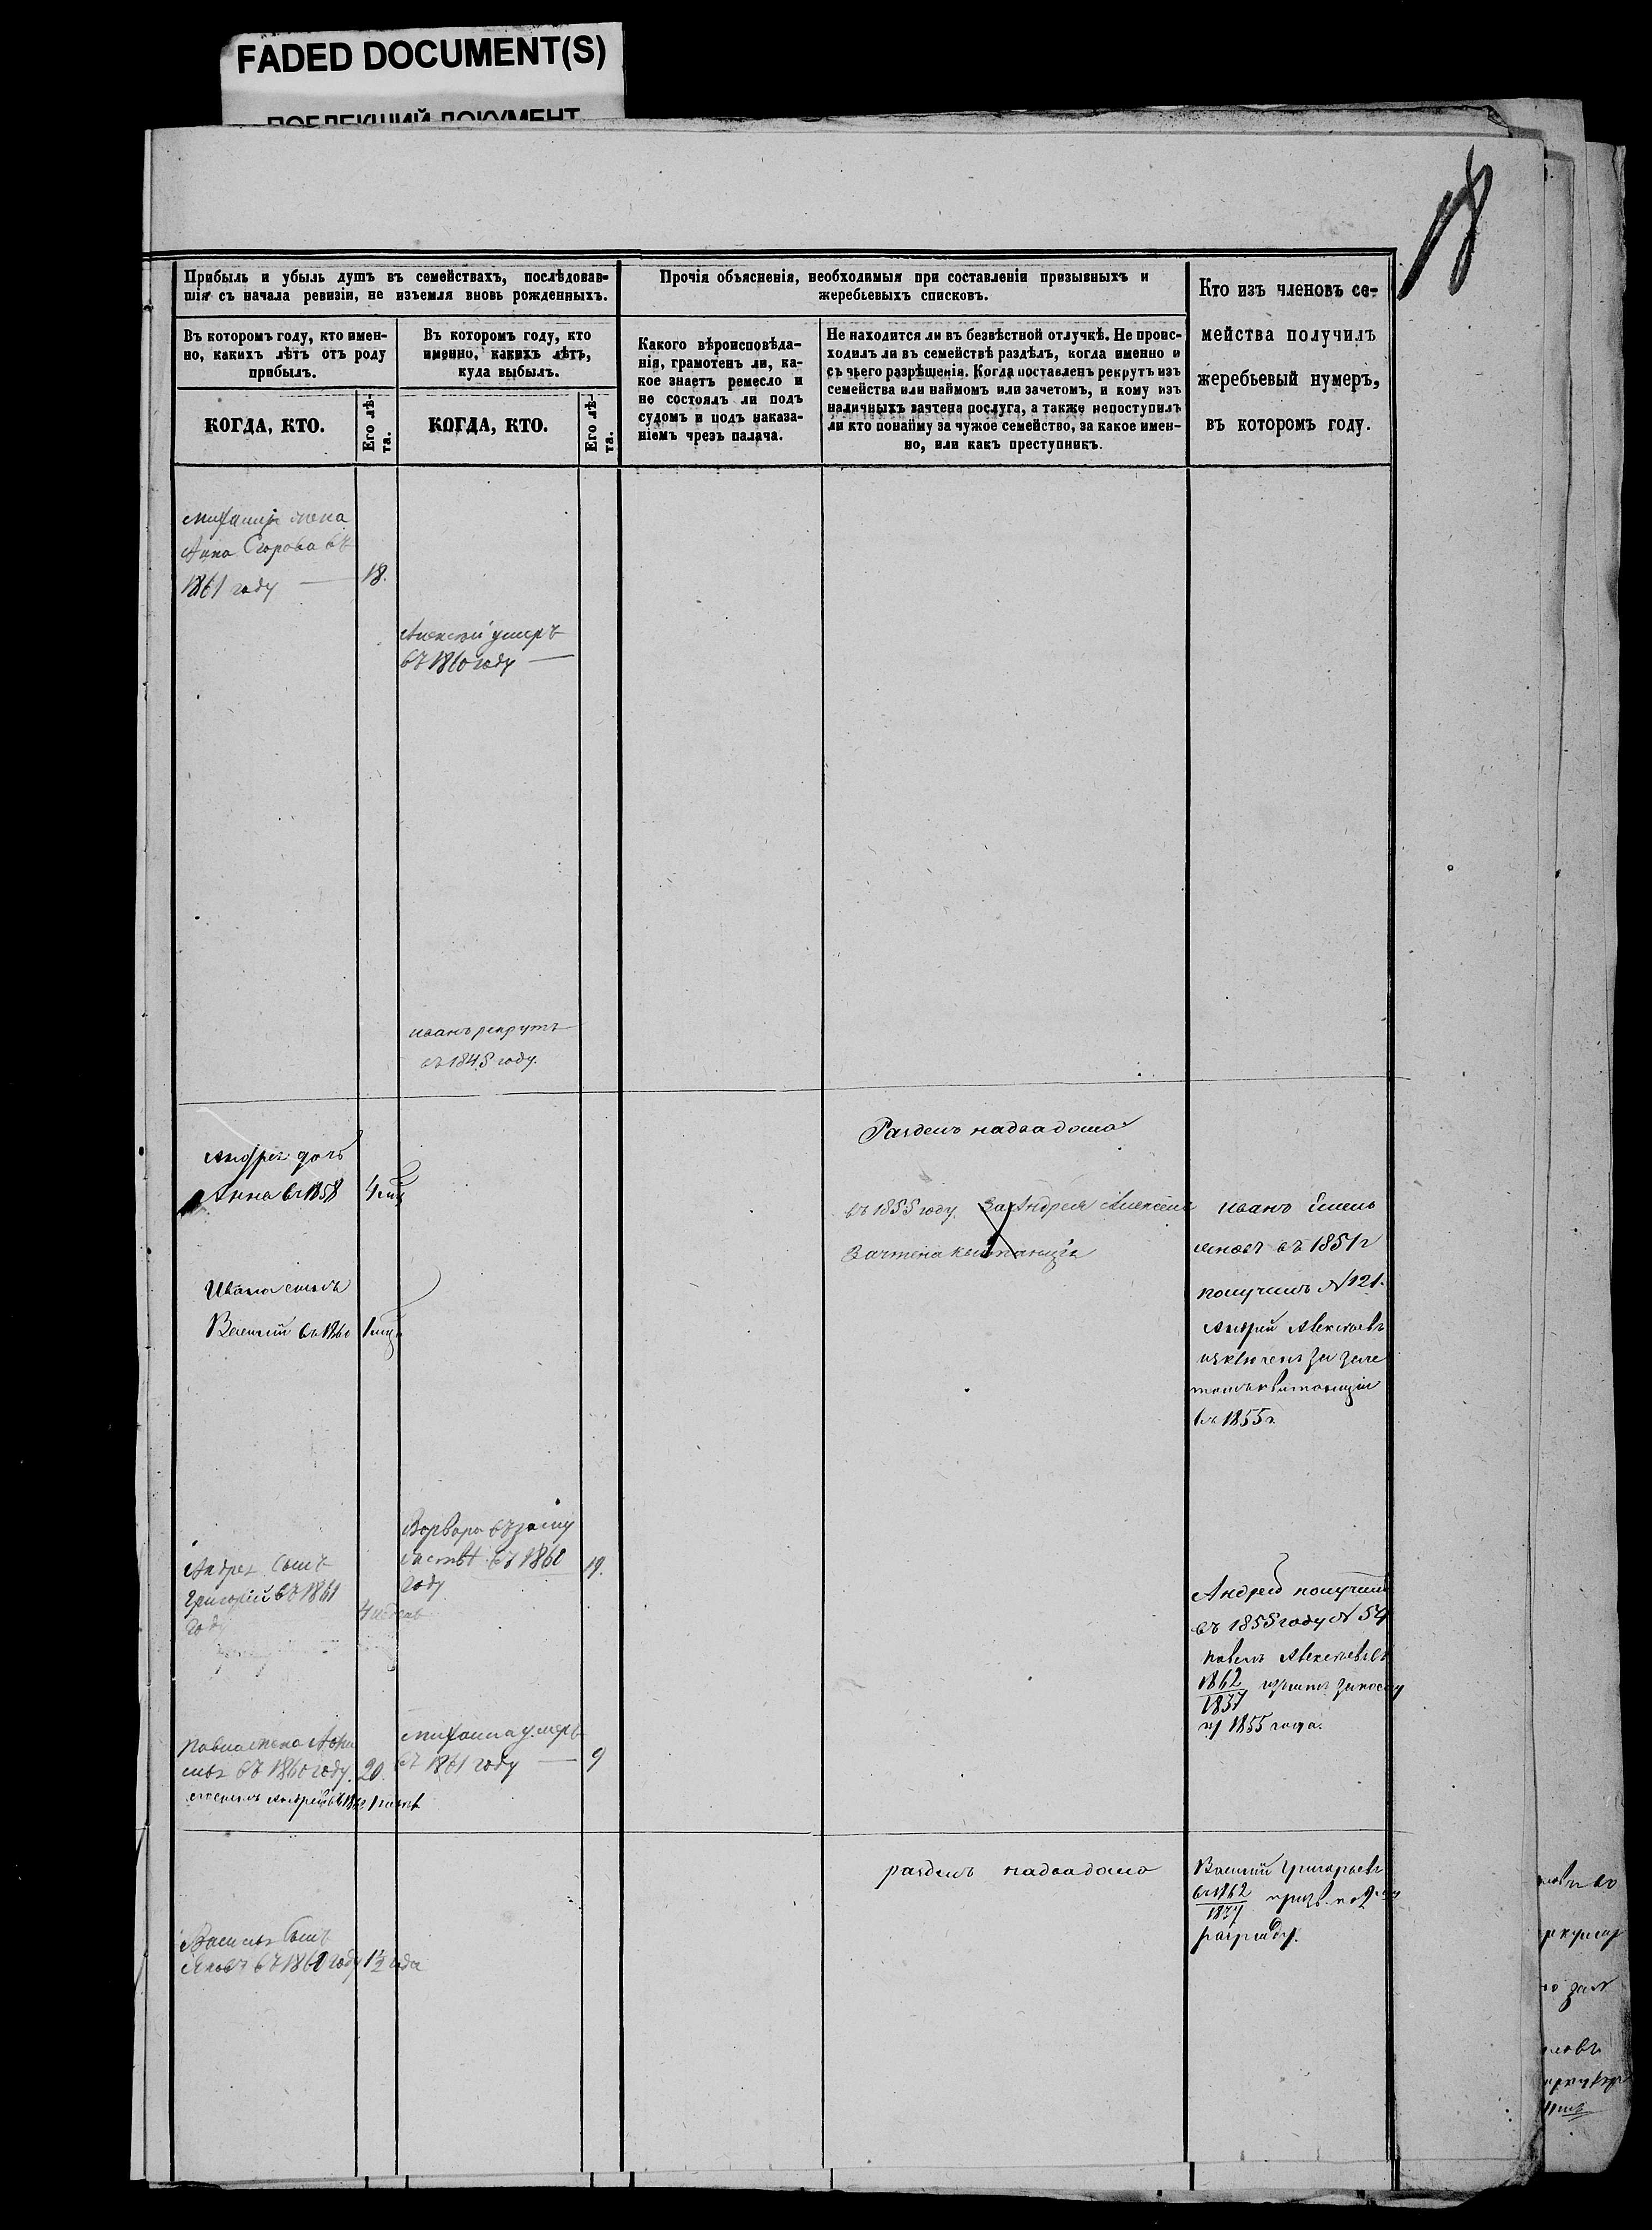 FADED DOCUMENT(S)
ПОБЛЕКШИЙ ДОКУМЕНТ
18
Прибыль и убыль душъ въ семействахъ, послѣдовав-
шія съ начала ревизіи, не изъемля вновь рожденныхъ.
Въ которомъ году, кто имен-
но, какихъ лѣтъ отъ роду
прибылъ.
КОГДА, КТО.
Его лѣ-
та.
Въ которомъ году, кто
именно, какихъ лѣтъ,
куда выбылъ.
КОГДА, КТО.
Его лѣ-
та.
Прочія объясненія, необходимыя при составленіи призывныхъ и
жеребьевыхъ списковъ.
Какого вѣроисповѣда-
нія, грамотенъ ли, ка-
кое знаетъ ремесло и
не состоялъ ли подъ
судомъ и подъ наказа-
ніемъ чрезъ палача.
Не находится ли въ безвѣстной отлучкѣ. Не проис-
ходилъ ли въ семействѣ раздѣлъ, когда именно и
съ чьего разрѣшенія. Когда поставленъ рекрутъ изъ
семейства или наймомъ или зачетомъ, и кому изъ
наличныхъ зачтена послуга, а также непоступилъ
ли кто понайму за чужое семейство, за какое имен-
но, или какъ преступникъ.
Кто изъ членовъ се-
мейства получилъ
жеребьевый нумеръ,
въ которомъ году.
жена
Анна Егорова въ
1861 году — 18.
Алексей умеръ
въ 1860 году —
иванъ рекрутъ
въ 1845 году.
Разделъ надвадома
Андрея дочь
Анна въ 1858
въ 1855 году За Андрея Алексеева
Зачтена квитанція
Ивана сынъ
Василий въ 1860
иванъ Емель
яновъ въ 1851 г
получилъ № 121.
Андрей Алексеевъ
изключенъ за заче
томъ квитанціи
въ 1855 г
Варвара въ заму
жество въ 1860
году
19.
Андрея Сынъ
Григорий въ 1861
году
4 недель
Андрей получилъ
въ 1855 году № 54
павелъ Алексеевъ въ
1862
1837
1855 года.
Павла жена
въ 1860 году. 20.
умеръ
въ 1861 году — 9
разделъ надвадома
Василий Григорьевъ
въ 1862
1837
разряду.
Василья Сынъ
Яковъ въ 1860 году 1½ года